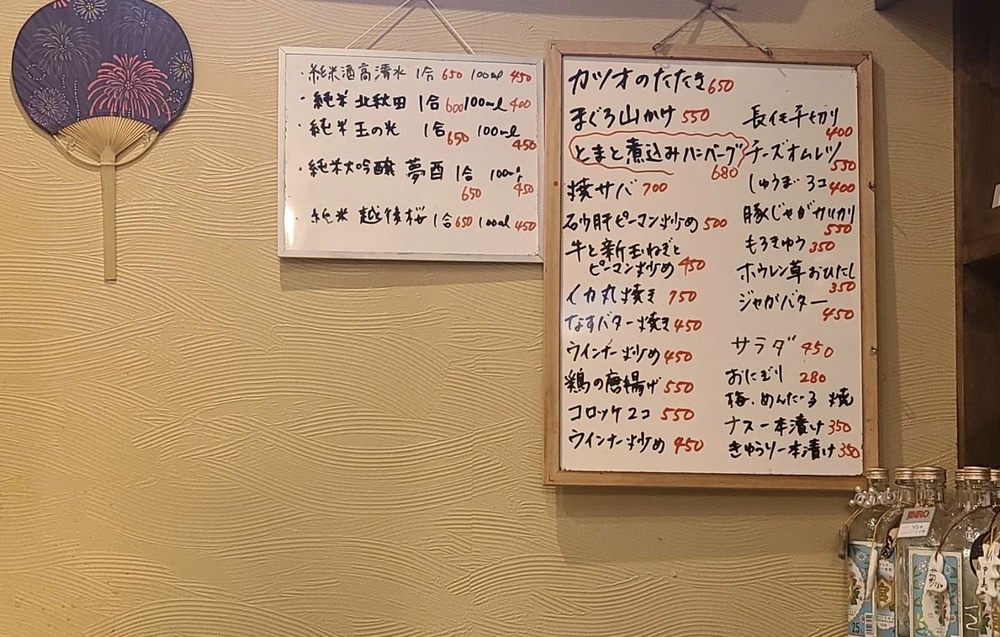 ・純米酒高清水 1合 650 100ml 450
・純米 北秋田 1合 600 100ml 400
・純米 玉の光 1合 650 100ml 450
・純米大吟醸 夢酉 1合 650 100ml 450
・純米 越後桜 1合 650 100ml 450
カツオのたたき 650
まぐろ山かけ 550
とまと煮込みハンバーグ 680
焼サバ 700
砂肝ピーマン炒め 500
牛と新玉ねぎと
ピーマン炒め 450
イカ丸焼き 750
なすバター焼き 450
ウインナー炒め 450
鶏の唐揚げ 550
コロッケ2コ 550
ウインナー炒め 450
長イモ千切り 400
チーズオムレツ 550
しゅうまい 3コ 400
豚じゃがカリカリ 550
もろきゅう 350
ホウレン草おひたし 350
ジャがバター 450
サラダ 450
おにぎり 280
梅、めんたいこ 焼
ナス一本漬け 350
きゅうり一本漬け 350
JINRO
25